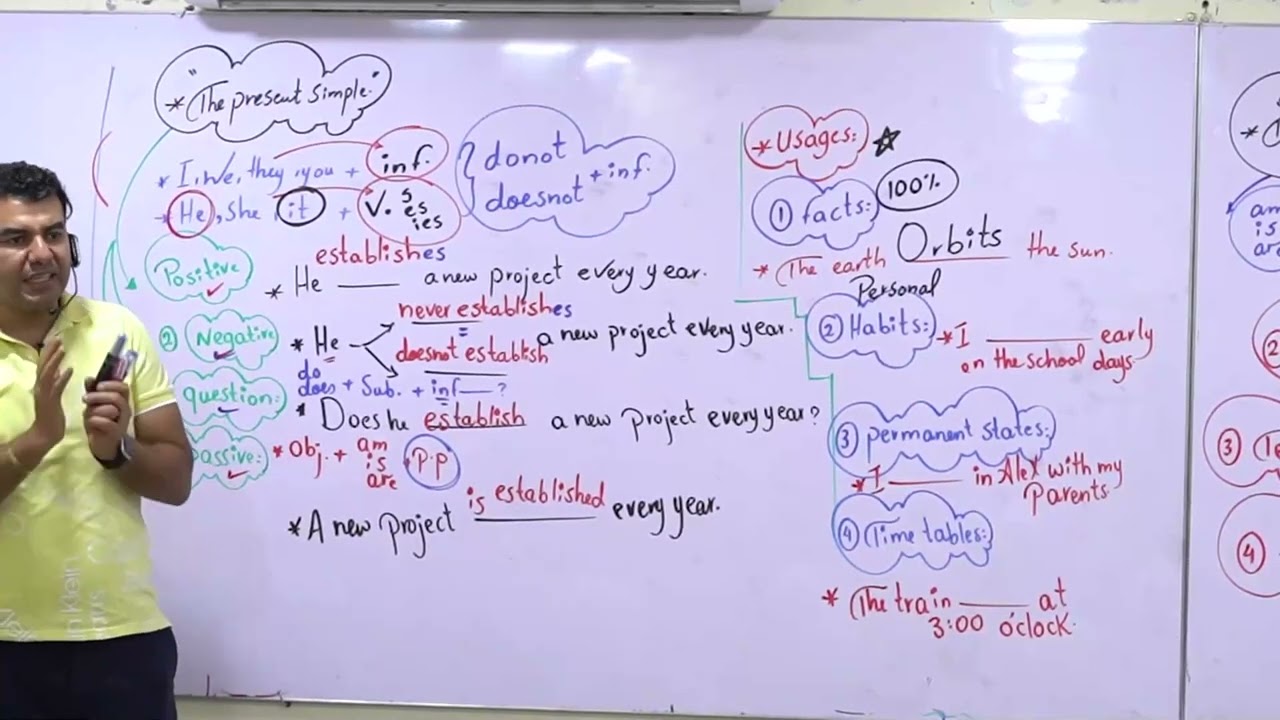 "* The present simple."
* I, we, they, you + inf.
* He, she, it + V. s es ies
donot
doesnot + inf.
Positive
establishes
* He ____ a new project every year.
② Negative
never establishes
=
* He a new project every year.
doesnot establish
question:
do
does + Sub. + inf ___ ?
* Does he establish a new project every year?
passive:
* Obj. + am is are P.P
* A new project is established every year.
* Usages:
① facts: 100%
* The earth Orbits the sun.
Personal
② Habits:
* I ____ early
on the school days
③ permanent states:
* I ____ in Alex with my
Parents.
④ Time tables:
* The train ____ at
3:00 o'clock.
*
am
is
are
②
③ Te
④